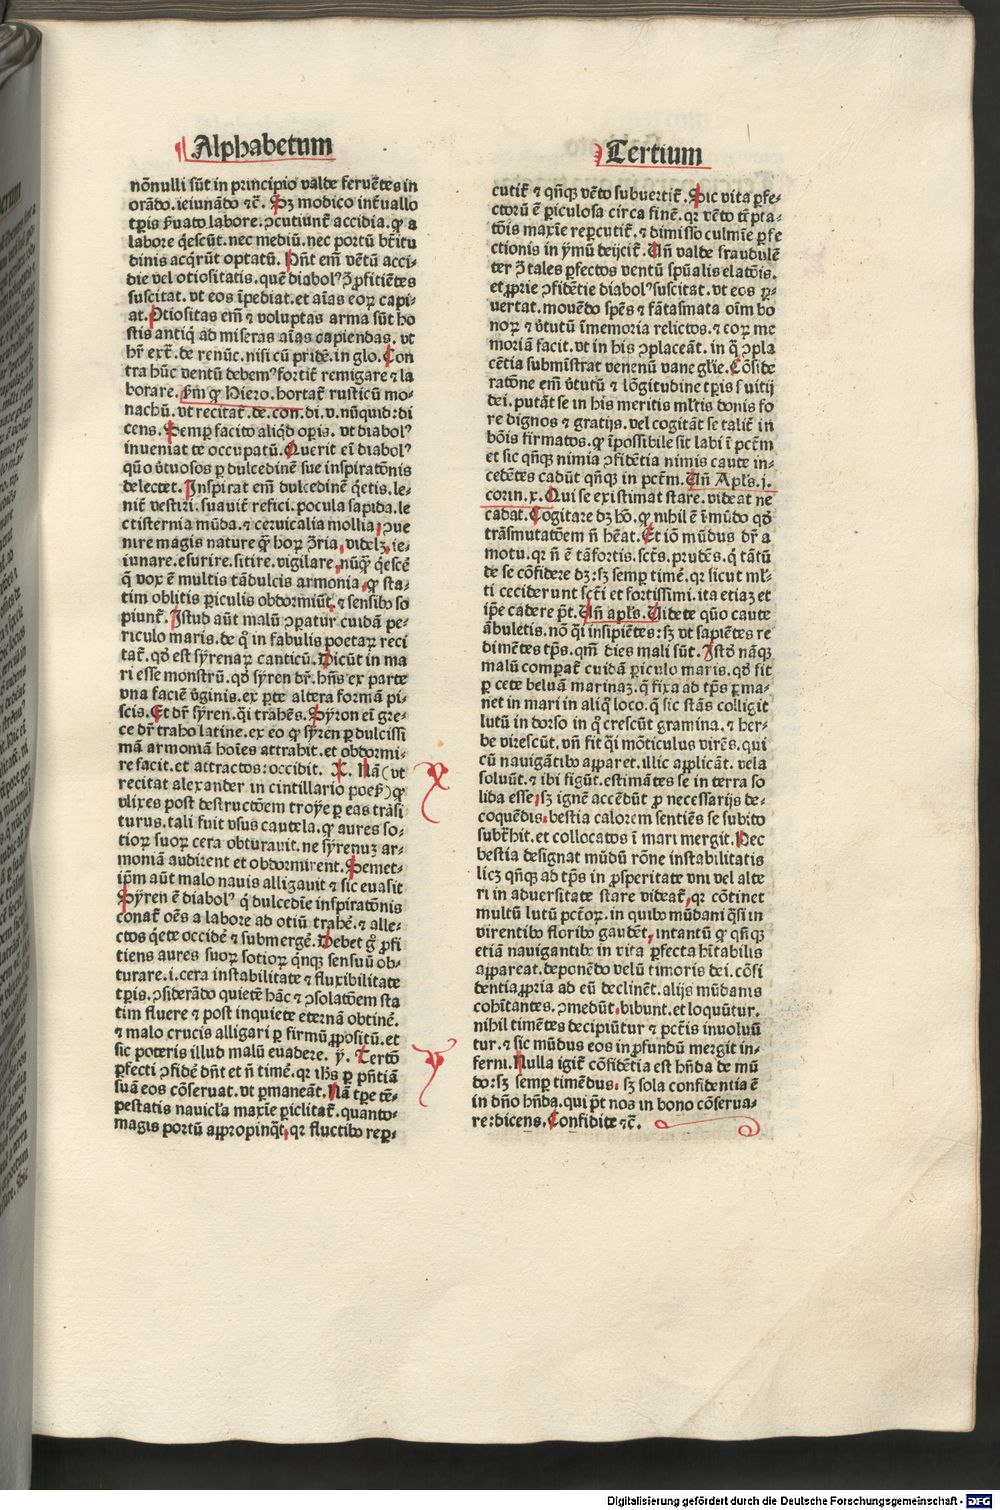 Alphabetum
Tertium
nōnulli sūt in principio valde feruētes in
orādo. ieiunādo ⁊c̄. Sꝫ modico int̄uallo
tꝑis ẜuato labore. ꝯcutiunt̄ accidia. ꝙ a
labore q̇escūt. nec mediū. nec portū bt̄itu
dinis acq̇rūt optatū. Pn̄t em̄ vētū acci-
die vel otiositatis. quē diabolꝰ ꝯ̄ ꝓfitiētes
suscitat. vt eos īpediat. et aīas eoꝝ capi-
at. Otiositas em̄ ⁊ voluptas arma sūt ho
stis antiq̇ ad miseras aīas capiendas. vt
hr̄ ext̄. de renūc. nisi cū pridē. in glo. Con
tra hūc ventū debemꝰ fortit̄ remigare ⁊ la
borare. ẜm ꝙ Hiero. hortat̄ rusticū mo-
nachū. vt recitat̄. de. con. di. v. nūquid: di
cens. Semꝑ facito aliq̇d oꝑis. vt diabolꝰ
inueniat te occupatū. Querit eī diabolꝰ
qūo v̄tuosos ꝑ dulcedinē sue inspiratōnis
delectet. Inspirat em̄ dulcedinē q̇etis. le-
nit̄ vestiri. suauit̄ refici. pocula sapida. le
ctisternia mūda. ⁊ ceruicalia mollia. ꝯue
nire magis nature qꝫ̄ hoꝝ ꝯ̄ria. videlꝫ. ie-
iunare. esurire. sitire. vigilare. nūqꝫ̄ q̇escē
q̇ vox ē multis tādulcis armonia. ꝙ sta-
tim oblitis ꝑiculis obdormiūt. ⁊ sensibꝰ so
piunt̄. Istud aūt malū ꝯꝑatur cuidā pe-
riculo maris. de q̊ in fabulis poetaꝝ reci
tat̄. qd̄ est syrenaꝝ canticū. Dicūt in ma
ri esse monstrū. qd̄ syren dr̄. hn̄s ex parte
vna faciē v̄ginis. ex ꝑte altera formā pi-
scis. Et dr̄ syren. q̇si trahēs. Syron eī gre-
ce dr̄ traho latine. ex eo ꝙ syren ꝑ dulcissi
mā armoniā hoīes attrahit. et obdormi-
re facit. et attractos: occidit. X. Nā (vt
recitat alexander in cintillario poet̄) ꝙ
vlixes post destructōem troye ꝑ eas trāsi
turus. tali fuit vsus cautela. ꝙ aures so-
tioꝝ suoꝝ cera obturauit. ne syrenuꝫ ar-
moniā audirent et obdormirent. Semet-
ip̄m aūt malo nauis alligauit ⁊ sic euasit
Syren ē diabolꝰ q̇ dulcedīe inspiratōnis
conat̄ oēs a labore ad otiū trahē. ⁊ alle-
ctos q̇ete occidē ⁊ submergē. Debet g̊ ꝓfi
tiens aures suoꝝ sotioꝝ q̇nqꝫ sensuū ob-
turare. i. cera instabilitate ⁊ fluxibilitate
tꝑis. ꝯsiderādo quietē hāc ⁊ ꝯsolatōem sta
tim fluere ⁊ post inquiete eternā obtinē.
⁊ malo crucis alligari ꝑ firmū ꝓpositū. et
sic poteris illud malū euadere. y. Tertō
ꝑfecti ꝯfidē dn̄t et n̄ timē. qꝛ ihs̄ ꝑ pn̄tiā
suā eos cōseruat. vt ꝑmaneāt. Nā tꝑe tē-
pestatis nauicl̄a maxīe ꝑiclitat̄. quanto-
magis portū aꝓpropinq̇t. qꝛ fluctibꝰ reꝑ-
cutit̄ ⁊ qn̄qꝫ vēto subuertit̄. Sic vita ꝑfe-
ctorū ē ꝑiculosa circa finē. qꝛ vēto tēpta-
tōis maxīe reꝑcutit̄. ⁊ dimisso culmīe ꝑfe
ctionis in ymū deijcit̄. Uñ valde fraudulē
ter ꝯ̄ tales ꝑfectos ventū spūalis elatōis.
et ꝓprie ꝯfidētie diabolꝰ suscitat. vt eos ꝑ-
uertat. mouēdo spēs ⁊ fātasmata oīm bo
noꝝ ⁊ v̄tutū ī memoria relictos. ⁊ eoꝝ me
moriā facit. vt in his ꝯplaceāt. in q̇ ꝯpla
cētia submistrat venenū vane gl̄ie. Cōside
ratōne em̄ v̄tutū ⁊ lōgitudine tꝑis ẜuitij
dei. putāt se in his meritis ml̄tis donis fo
re dignos ⁊ gratijs. vel cogitāt se talit̄ in
bōis firmatos. ꝙ īpossibile sit labi ī pctm̄
et sic qn̄qꝫ nimia ꝯfidētia nimis caute in-
cedētes cadūt qn̄qꝫ in pctm̄. Uñ Apl̄s. j.
corin. x. Qui se existimat stare. videat ne
cadat. Cogitare dꝫ hō. ꝙ nihil ē ī mūdo qd̄
trāsmutatōem n̄ hēat. Et iō mūdus dr̄ a
motu. qꝛ n̄ ē tā fortis. sct̄s. prudēs. q̇ tātū
de se cōfidere dꝫ: sꝫ semꝑ timē. qꝛ sicut ml̄-
ti ceciderunt sct̄i et fortissimi. ita etiaꝫ et
ip̄e cadere pt̄. Uñ apl̄s. Uidete qūo caute
ābuletis. nō q̇si insipiētes: sꝫ vt sapiētes re
dimētes tp̄s. qm̄ dies mali sūt. Istd̄ nāqꝫ
malū comparat̄ cuidā ꝑiculo maris. qd̄ fit
ꝑ cete beluā marinaꝫ. q̇ fixa ad tp̄s ꝑma-
net in mari in aliq̊ loco. q̇ sic stās colligit
lutū in dorso in q̊ crescūt gramina. ⁊ her-
be virescūt. vn̄ fit q̇si mōticulus virēs. qui
cū nauigātibꝰ aꝑparet. illic applicāt. vela
soluūt. ⁊ ibi figūt. estimātes se in terra so
lida esse. sꝫ ignē accēdūt ꝓ necessarijs de-
coquēdis. bestia calorem sentiēs se subito
subt̄hit. et collocatos ī mari mergit. Hec
bestia designat mūdū rōne instabilitatis
licꝫ qn̄qꝫ ad tp̄s in ꝓsperitate vni vel alte
ri in aduersitate stare videat̄. qꝛ cōtinet
multū lutū pctōꝝ. in quibꝰ mūdani q̇si in
virentibꝰ floribꝰ gaudēt. intantū ꝙ qn̄qꝫ
etiā nauigantibꝰ in vita ꝑfecta hītabilis
aꝑpareat. deponēdo velū timoris dei. cōfi
dentia ꝓpria ad eū declinēt. alijs mūdanis
cohītantes. ꝯmedūt. bibunt. et loquūtur.
nihil timētes decipiūtur ⁊ pctīs inuoluū
tur. ⁊ sic mūdus eos in ꝓfundū mergit in-
ferni. Nulla igit̄ cōfidētia est hn̄da de mū
do: sꝫ semꝑ timēdus. sꝫ sola confidentia ē
in dn̄o hn̄da. qui pt̄ nos in bono cōserua-
re: dicens. Confidite ⁊c̄.
X
y
Digitalisierung gefördert durch die Deutsche Forschungsgemeinschaft - DFG